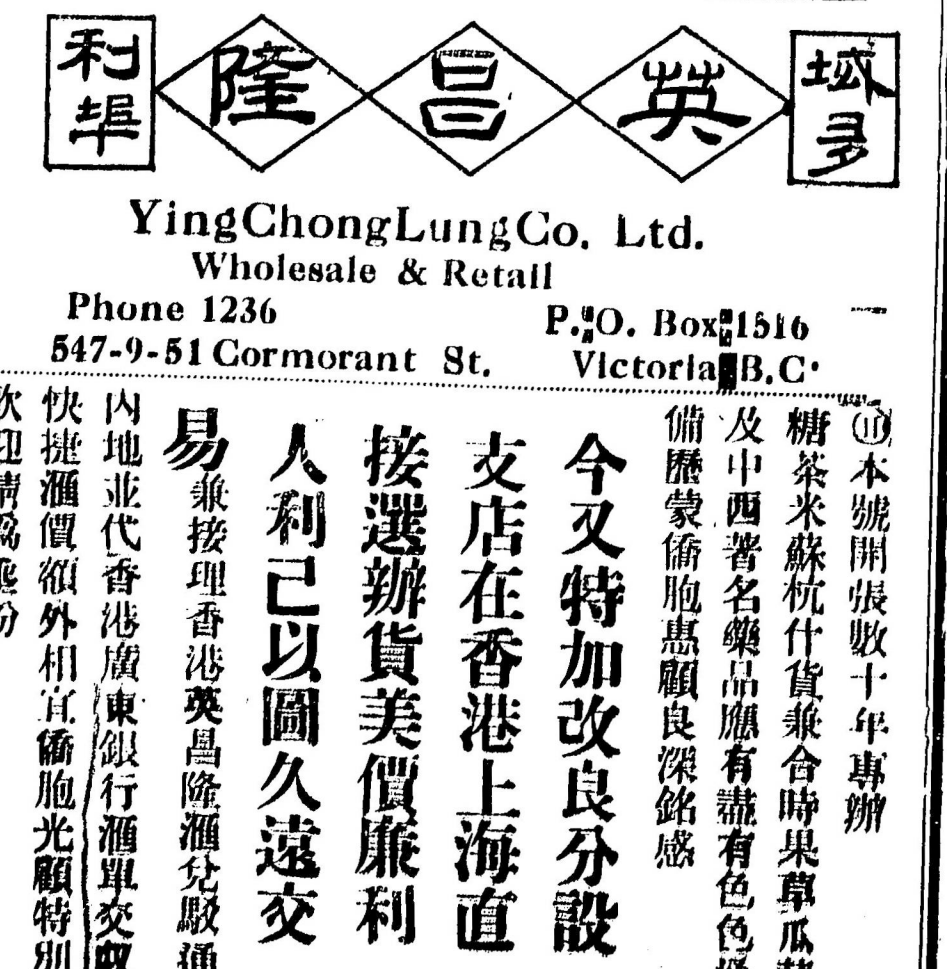 域多 英昌隆 利埠
YingChongLungCo. Ltd.
Wholesale & Retail
Phone 1236
P.O. Box 1516
547-9-51 Cormorant St.
Victoria B.C.
⑪本號開張數十年專辦
糖茶米蘇杭什貨兼合時果草瓜
及中西著名藥品應有盡有色色
備歷蒙僑胞惠顧良深銘感
今又特加改良分設
支店在香港上海直
接選辦貨美價廉利
人利己以圖久遠交
易兼接理香港英昌隆滙兌駁通
內地並代香港廣東銀行滙單交收
快捷滙價額外相宜僑胞光顧特別